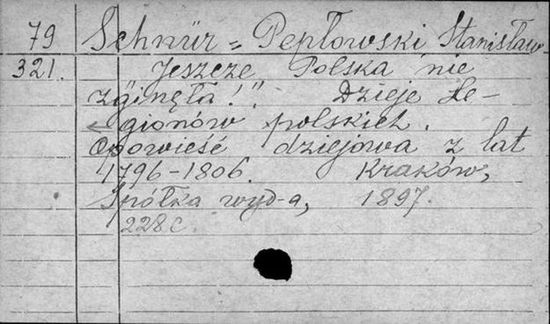 79 Schnür-Pepłowski Stanisław
321. Jeszcze Polska nie
zginęła!". Dzieje Le-
gionów polskich.
Opowieść dziejowa z lat
1796-1806. Kraków,
Spółka wyd-a, 1897.
228 c.